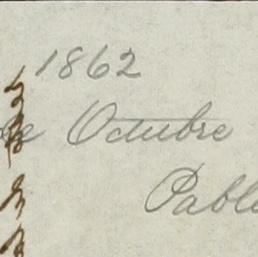 1862
de Octubre
Pablo